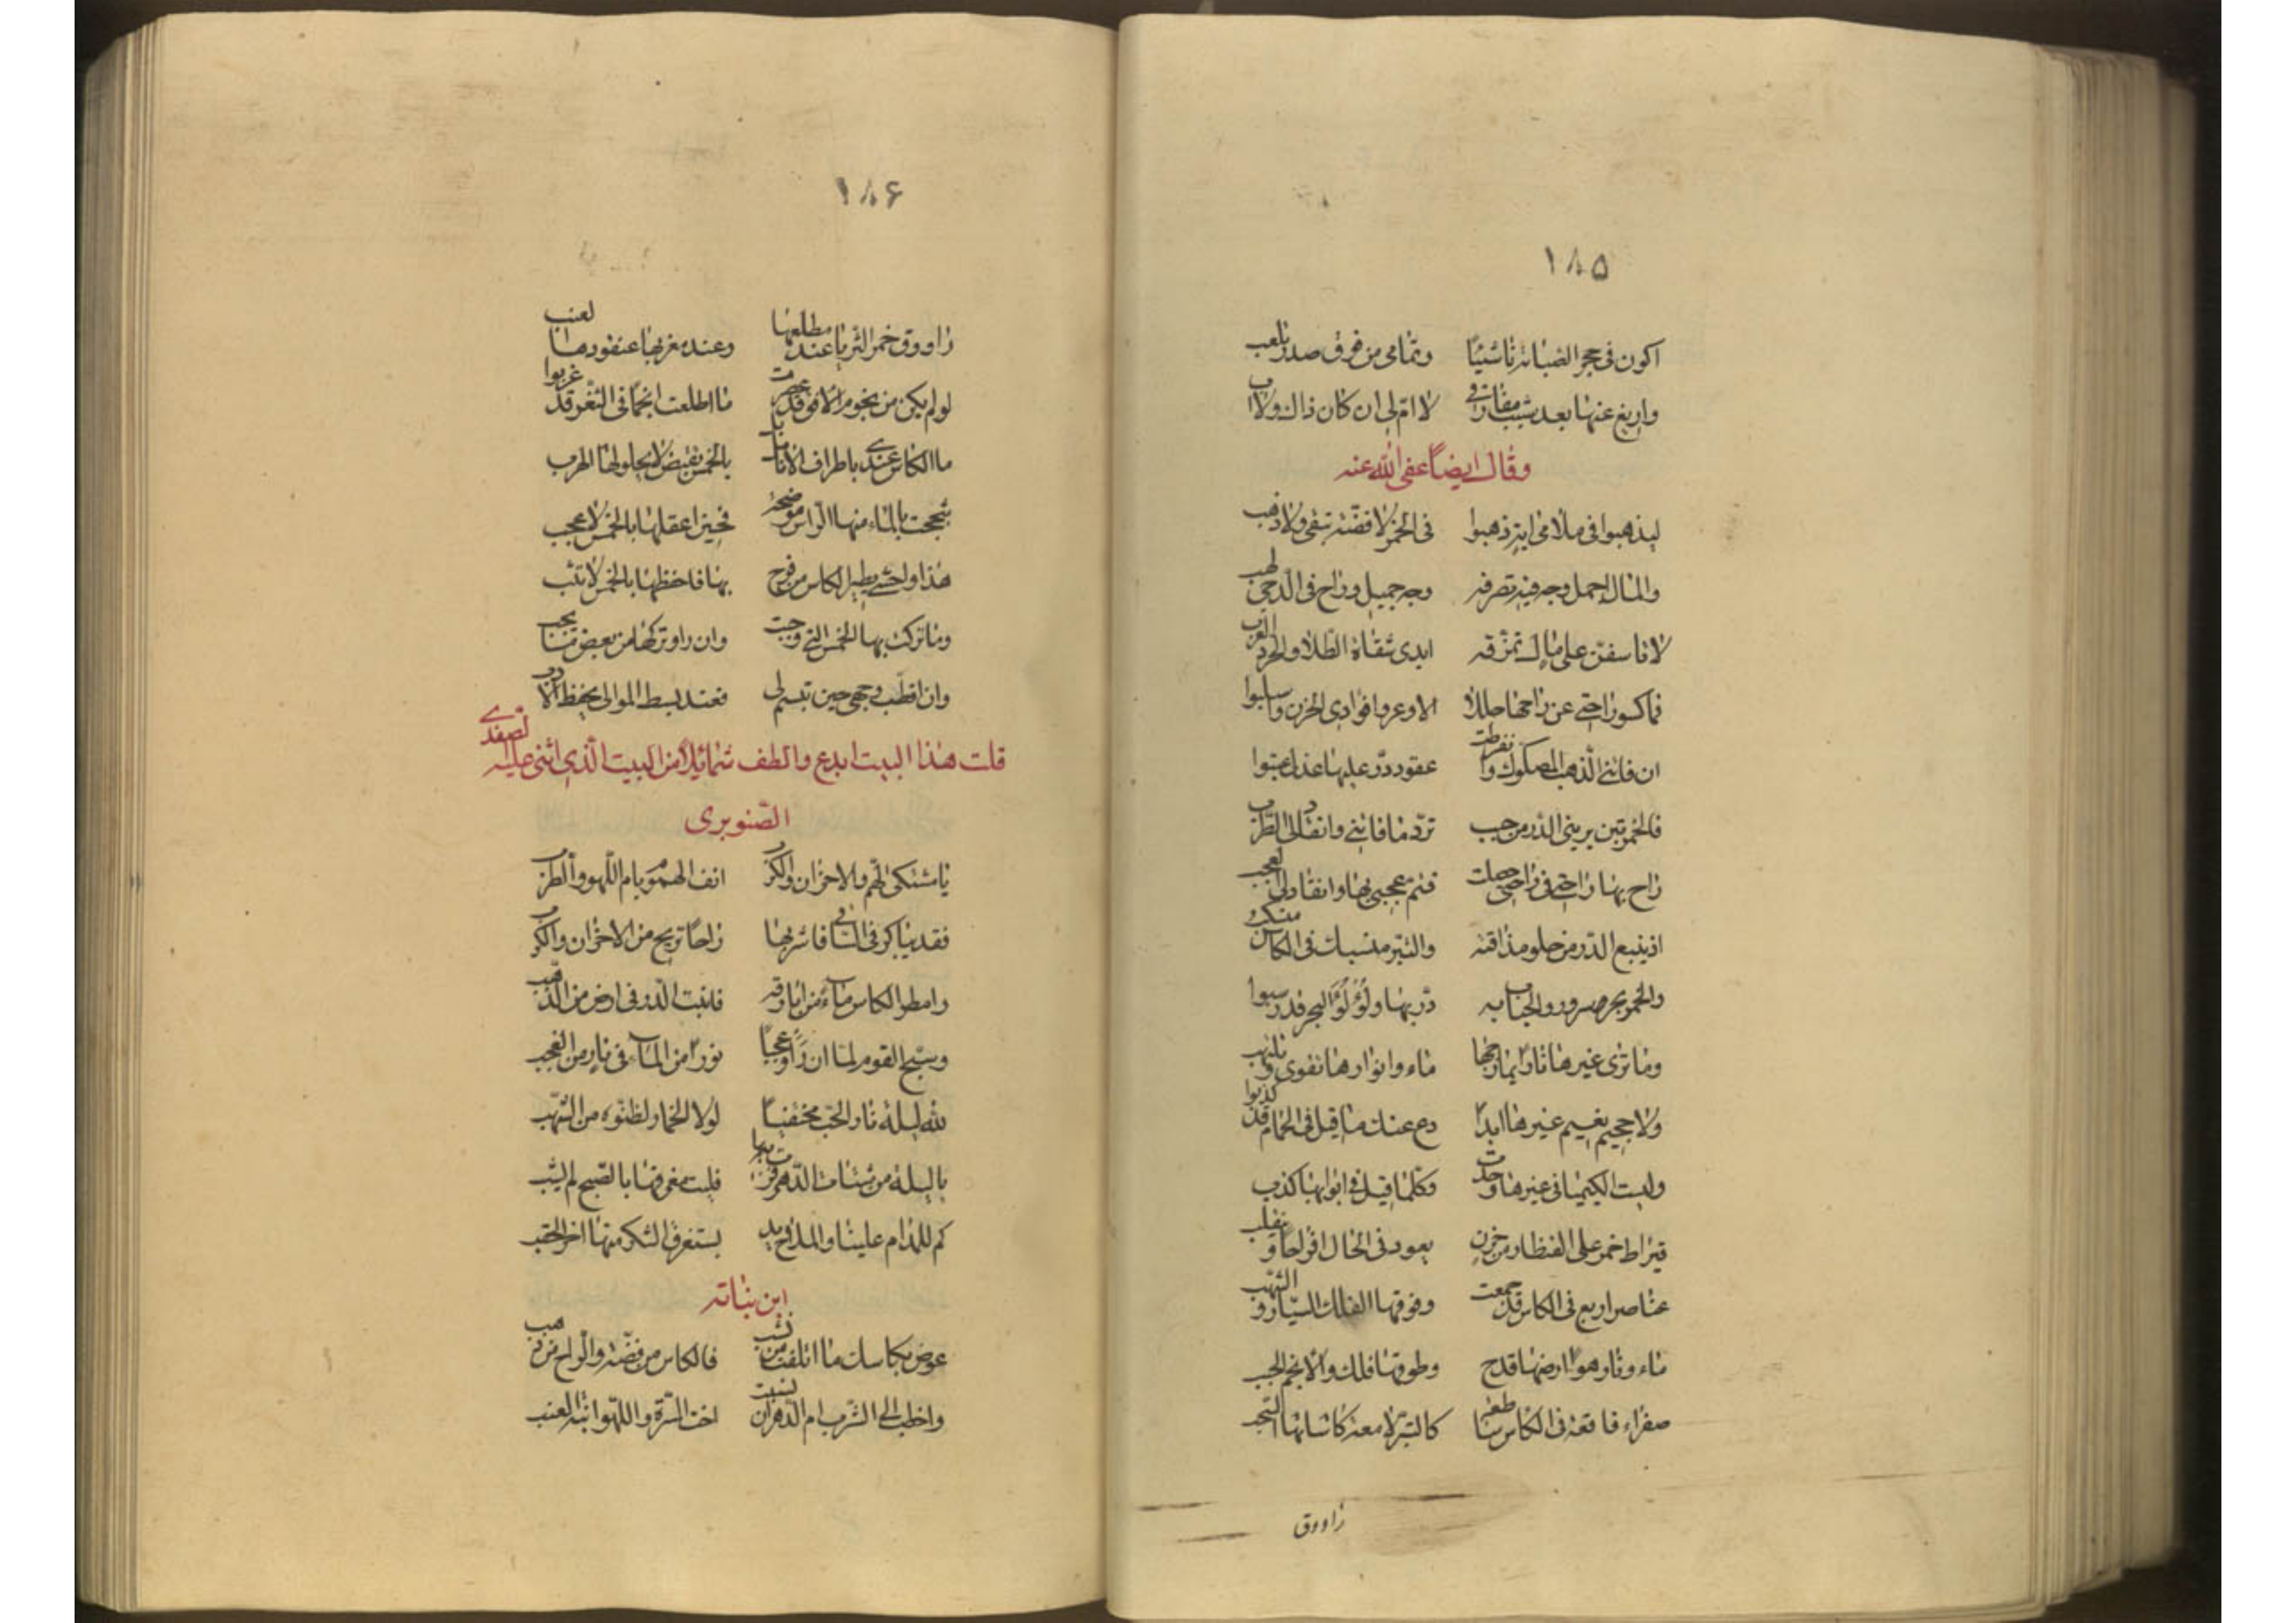 ١٨٥
اكون فى حجر الصبابة ناشئيًا وتمامى من فوق صدر تلعب
وازيغ عنها بعد شيب مفارقى لا ام لى ان كان ذاك ولا اب
وقال ايضاً عفى الله عنه
ليذهبوا فى ملامى اية ذهبوا فى الخمر لا فضة تبقى ولا ذهب
والمال اجمل وجه فيه تصرفه وجه جميل وراح فى الدجى لهب
لا تاسفن على مال تمزقه ايدى سقاة الطلا والخرد العرب
فما كسوا راحتى عن راحها حللا الا وعروا فوادى الحزن واستلبوا
ان فاتنى الذهب المصكوك وانفرطت عقود در عليها عذلى عتبوا
فالخمر تبرينى الدر من حبب ترد ما فاتنى وانقاد لى الطرب
راح بها راحتى فى راحتى حصلت فتم عجبى بها وانقاد لى العجب
اذ ينبع الدر من حلو مذاقته والتبر منسبك فى الكاس منسكب
والخمر بحر سرور والحباب به در بها ولؤلؤ البحر قد رسبوا
وما ترى غيرها نارًا يمازجها ماء وانوارها تقوى وتلتهب
ولا جحيم نعيم غيرها ابدًا دع عنك ما قيل فى الحمام قد كذبوا
وليست الكيميا فى غيرها وجدت وكلما قيل فى ابوابها كذب
قيراط خمر على القنطار من حزن يعود فى الحال افراحا وينقلب
عناصر اربع فى الكاس قد جمعت وفوقها الفلك السيار والشهب
ماء ونار هوا ارضها قدح وطوقها فلك والانجم الحبب
صفراء فاقعة فى الكاس ساطعة كالتبر لامعة كاساتها النجب
راووق
١٨۶
راووق خمر الثريا عند مطلعها وعند مغربها عنقودها لعنب
لو لم يكن من نجوم الافق قد عصرت ما اطلعت انجمًا فى الثغر قد غربوا
ما الكاس عندى باطراف الانامل بل بالخمس تقبض لا يحلو لها الهرب
شججت بالماء منها الراس موضحة فحين اعقلها بالخمس لا عجب
وما تركت بها الخمس التى وجبت وان راو تركها من بعض ما يجب
وان اقطب وجهى حين تبسم لى فعند بسط الموالى يحفظ الادب
قلت هذا البيت ابدع والطف شمائلًا من البيت الذى اثنى عليه لصفدى
الصنوبرى
يا مشتكى الهم والاحزان والكرب انف الهموم بام اللهو والطرب
وامطر الكاس ماء من ابارقه فانبت الدر فى ارض من الذهب
وسبح القوم لما ان راوا عجبًا نورًا من الماء فى نار من العنب
لله ليلة نار الحب مختفيًا لولا الخمار لظنوه من الشهب
كم للمدام علينا والملاح يد يستغرق الشكر منها اخر الحقب
ابن نباته
عوض بكاسك ما اتلفت من نشب فالكاس من فضة والراح من ذهب
واخطب الى الشرب ام الدهر ان نسبت اخت المسرة واللهو ابنة العنب